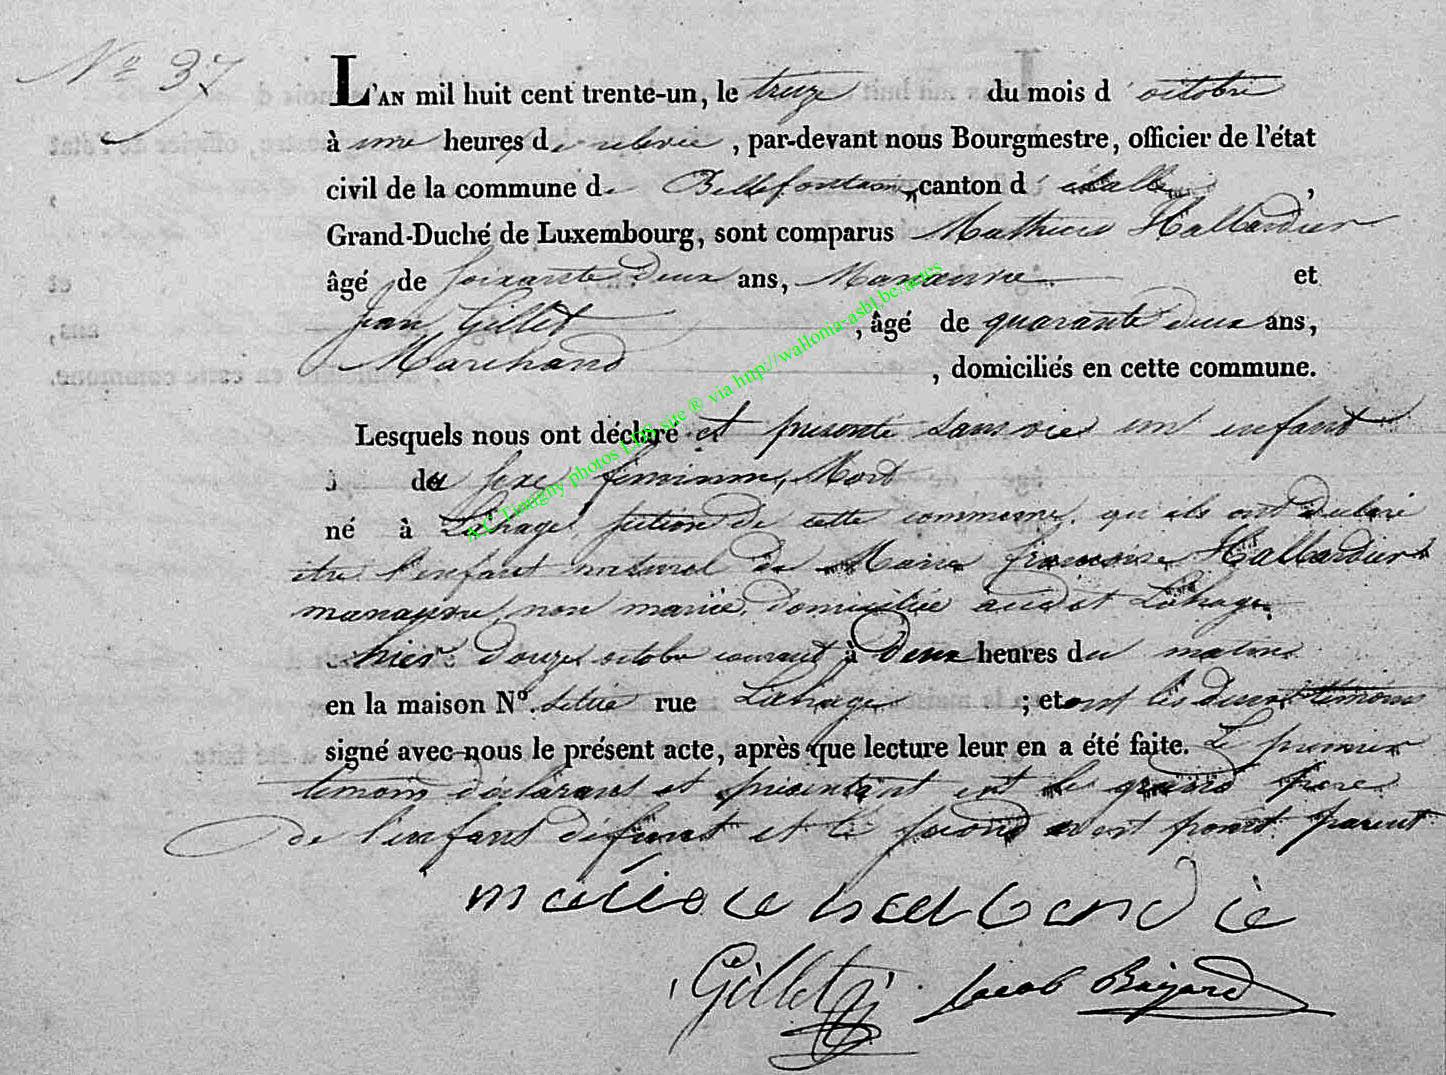 N° 37
L'AN mil huit cent trente-un, le treize du mois d'octobre
à une heures de relevée, par-devant nous Bourgmestre, officier de l'état
civil de la commune de Bellefontaine, canton d'étalle,
Grand-Duché de Luxembourg, sont comparus Mathieu Hallbardier
âgé de soixante deux ans, Manœuvre et
Jean Gillet, âgé de quarante deux ans,
Marchand, domiciliés en cette commune.
Lesquels nous ont déclaré et présenté sans vie un enfant
du sexe féminin, Mort
né à Lahage, section de cette commune, qu'ils ont déclaré
être l'enfant naturel de Marie françoise Hallbardier
manœuvre, non mariée, domiciliée audit Lahage
hier douze octobre courant à Deux heures du matin
en la maison N°. rue Lahage ; et ont les deux témoins
signé avec nous le présent acte, après que lecture leur en a été faite. Le premier
témoin déclarant et présentant est le grand père
de l'enfant défunt et le second n'est point parent
halbardié
Gillet Jacob Bajard
A.C Tintigny photos LDS site ® via http://wallonia-asbl.be/actes